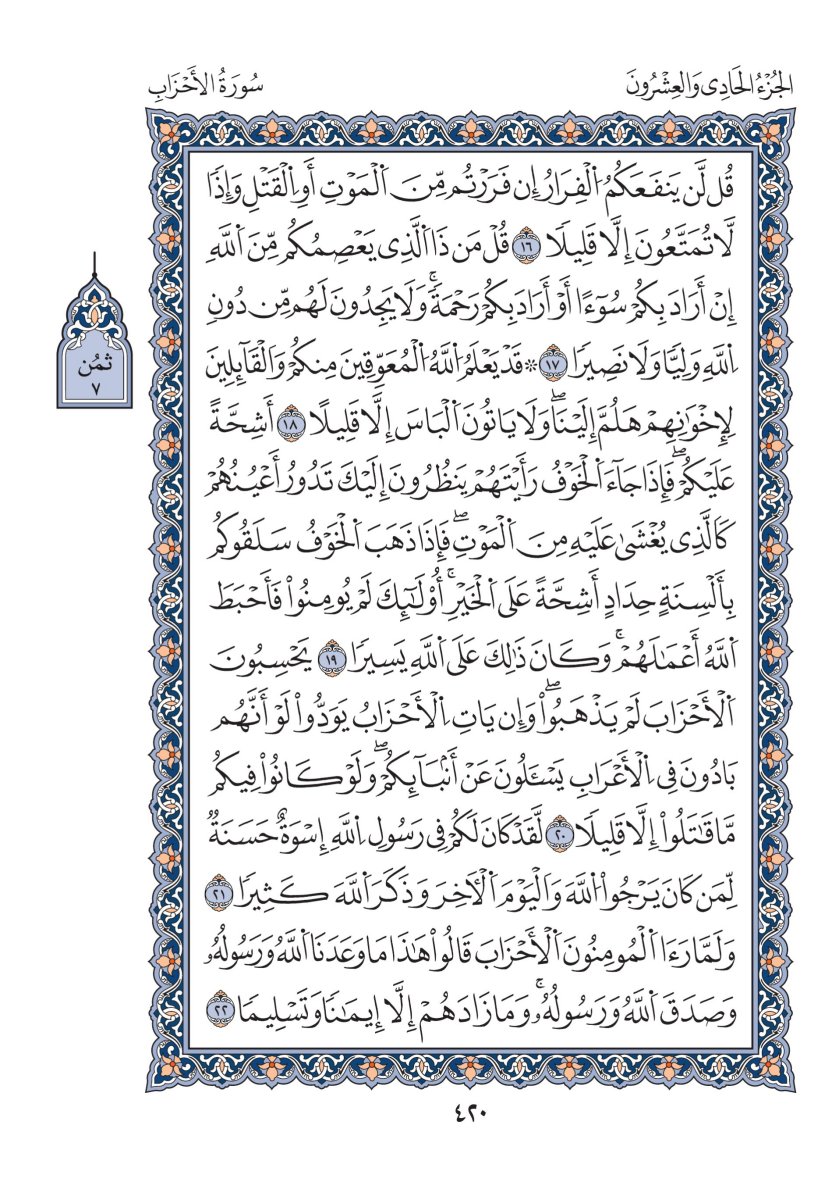 الجُزْءُ الحَادِي وَالعِشْرُونَ
سُورَةُ الأَحْزَابِ
قُل لَّن يَنفَعَكُمُ اُ۬لْفِرَارُ إِن فَرَرْتُم مِّنَ اَ۬لْمَوْتِ أَوِ اِ۬لْقَتْلِ وَإِذٗا
لَّا تُمَتَّعُونَ إِلَّا قَلِيلٗا ١٦ قُلْ مَن ذَا اَ۬لَّذِي يَعْصِمُكُم مِّنَ اَ۬للَّهِ
إِنْ أَرَادَ بِكُمْ سُوٓءًا أَوْ أَرَادَ بِكُمْ رَحْمَةٗۚ وَلَا يَجِدُونَ لَهُم مِّن دُونِ
اِ۬للَّهِ وَلِيّٗا وَلَا نَصِيرٗا ١٧ ۞ قَدْ يَعْلَمُ اُ۬للَّهُ اُ۬لْمُعَوِّقِينَ مِنكُمْ وَالْقَآئِلِينَ
لِإِخْوَٰنِهِمْ هَلُمَّ إِلَيْنَاۖ وَلَا يَاتُونَ اَ۬لْبَاسَ إِلَّا قَلِيلًا ١٨ أَشِحَّةً
عَلَيْكُمْۖ فَإِذَا جَآءَ اَ۬لْخَوْفُ رَأَيْتَهُمْ يَنظُرُونَ إِلَيْكَ تَدُورُ أَعْيُنُهُمْ
كَالَّذِي يُغْشَىٰ عَلَيْهِ مِنَ اَ۬لْمَوْتِۖ فَإِذَا ذَهَبَ اَ۬لْخَوْفُ سَلَقُوكُم
بِأَلْسِنَةٍ حِدَادٍ أَشِحَّةً عَلَى اَ۬لْخَيْرِۚ أُوْلَٰٓئِكَ لَمْ يُومِنُواْ فَأَحْبَطَ
اَ۬للَّهُ أَعْمَٰلَهُمْۚ وَكَانَ ذَٰلِكَ عَلَى اَ۬للَّهِ يَسِيرٗا ١٩ يَحْسِبُونَ
اَ۬لْأَحْزَابَ لَمْ يَذْهَبُواْۖ وَإِن يَاتِ اِ۬لْأَحْزَابُ يَوَدُّواْ لَوْ أَنَّهُم
بَادُونَ فِي اِ۬لْأَعْرَابِ يَسْـَٔلُونَ عَنْ أَنۢبَآئِكُمْۖ وَلَوْ كَانُواْ فِيكُم
مَّا قَٰتَلُواْ إِلَّا قَلِيلٗا ٢٠ لَّقَدْ كَانَ لَكُمْ فِي رَسُولِ اِ۬للَّهِ إِسْوَةٌ حَسَنَةٞ
لِّمَن كَانَ يَرْجُواْ اُ۬للَّهَ وَالْيَوْمَ اَ۬لْأٓخِرَ وَذَكَرَ اَ۬للَّهَ كَثِيرٗا ٢١
وَلَمَّا رَءَا اَ۬لْمُومِنُونَ اَ۬لْأَحْزَابَ قَالُواْ هَٰذَا مَا وَعَدَنَا اَ۬للَّهُ وَرَسُولُهُۥ
وَصَدَقَ اَ۬للَّهُ وَرَسُولُهُۥۚ وَمَا زَادَهُمْ إِلَّا إِيمَٰنٗا وَتَسْلِيمٗا ٢٢
ثمُن
٧
٤٢٠